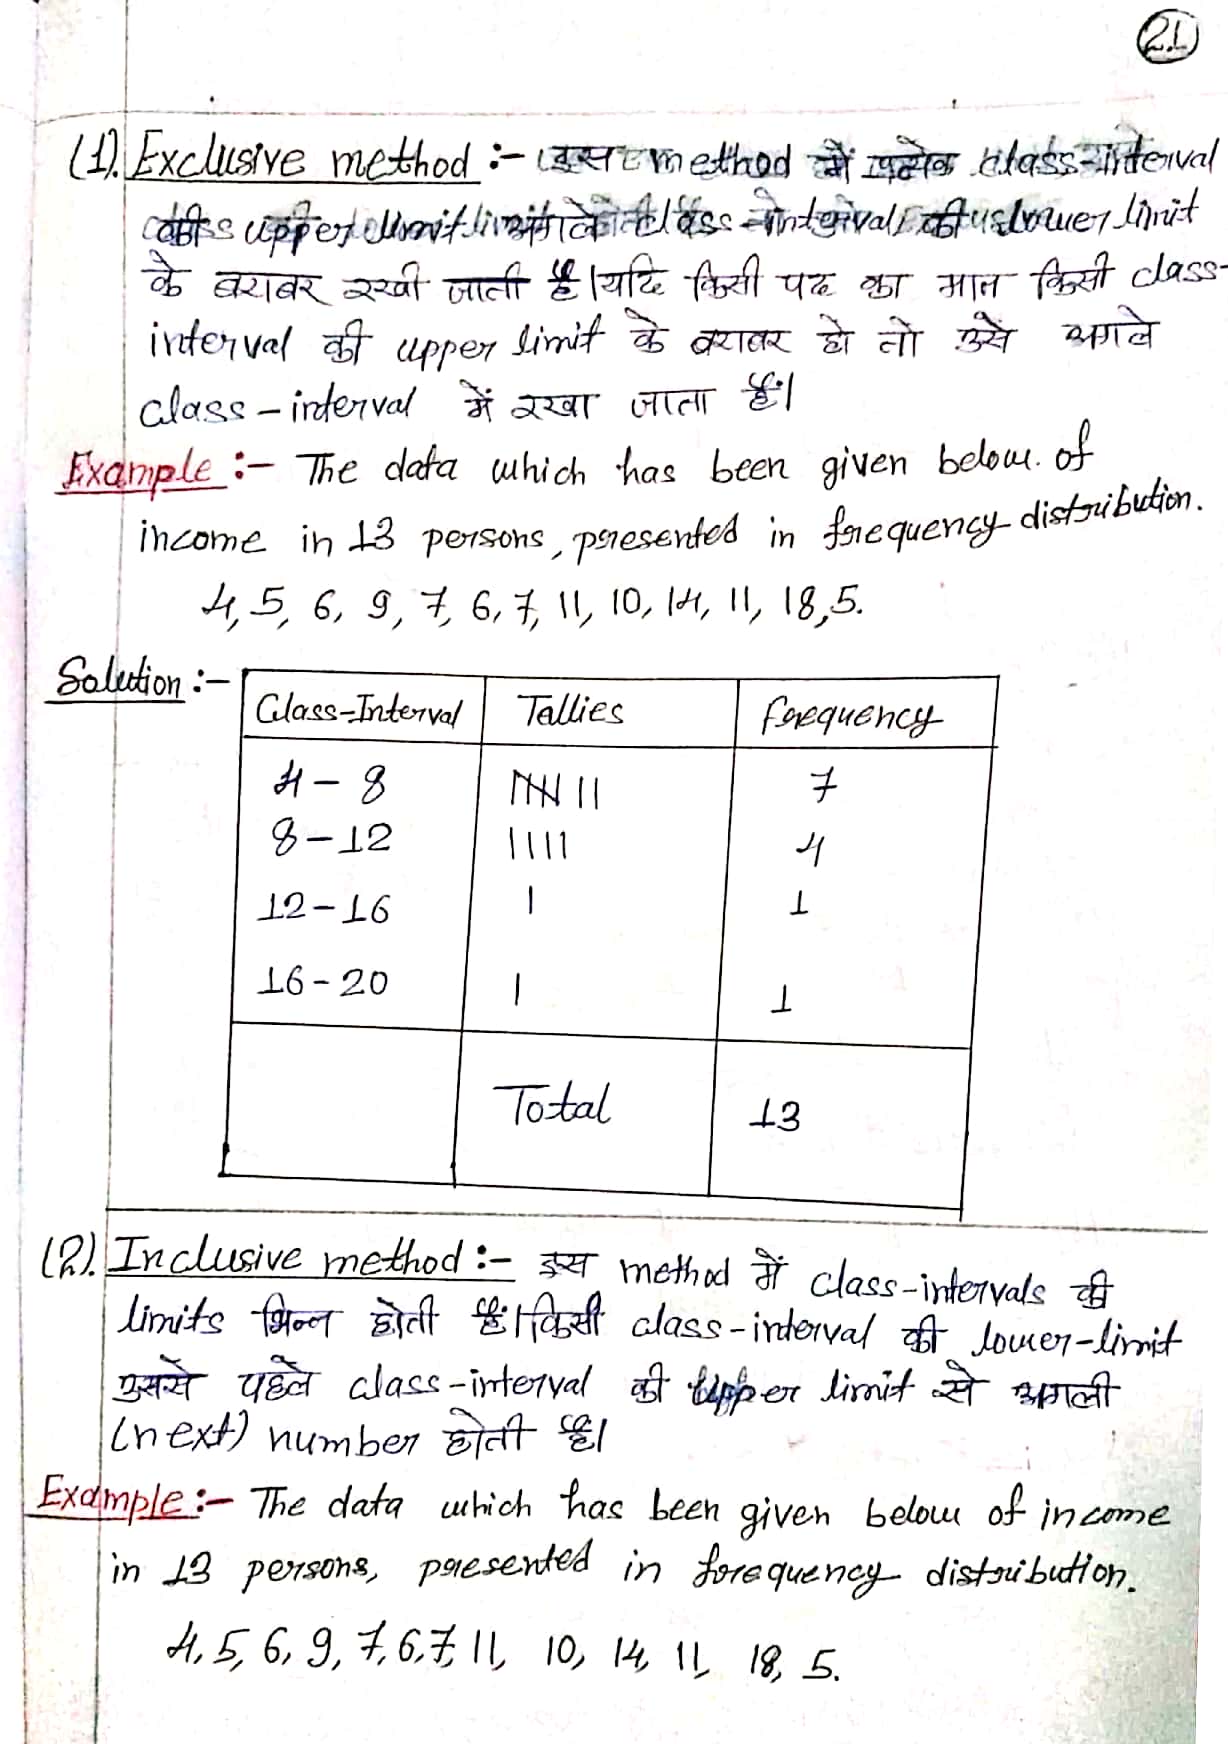 21
(1). Exclusive method :- इस method में प्रत्येक class-interval
की upper limit class-interval की lower limit
के बराबर रखी जाती है। यदि किसी पद का मान किसी class-
interval की upper limit के बराबर हो तो उसे अगले
class-interval में रखा जाता है।
Example :- The data which has been given below. of
income in 13 persons, presented in frequency distribution.
4, 5, 6, 9, 7, 6, 7, 11, 10, 14, 11, 18, 5.
Solution :-
Class-Interval Tallies frequency
4 - 8 7
8 - 12 |||| 4
12 - 16 | 1
16 - 20 | 1
Total 13
(2). Inclusive method :- इस method में class-intervals की
limits भिन्न होती हैं। किसी class-interval की lower-limit
उससे पहले class-interval की upper limit से अगली
(next) number होती है।
Example :- The data which has been given below of income
in 13 persons, presented in frequency distribution.
4, 5, 6, 9, 7, 6, 7, 11, 10, 14, 11, 18, 5.